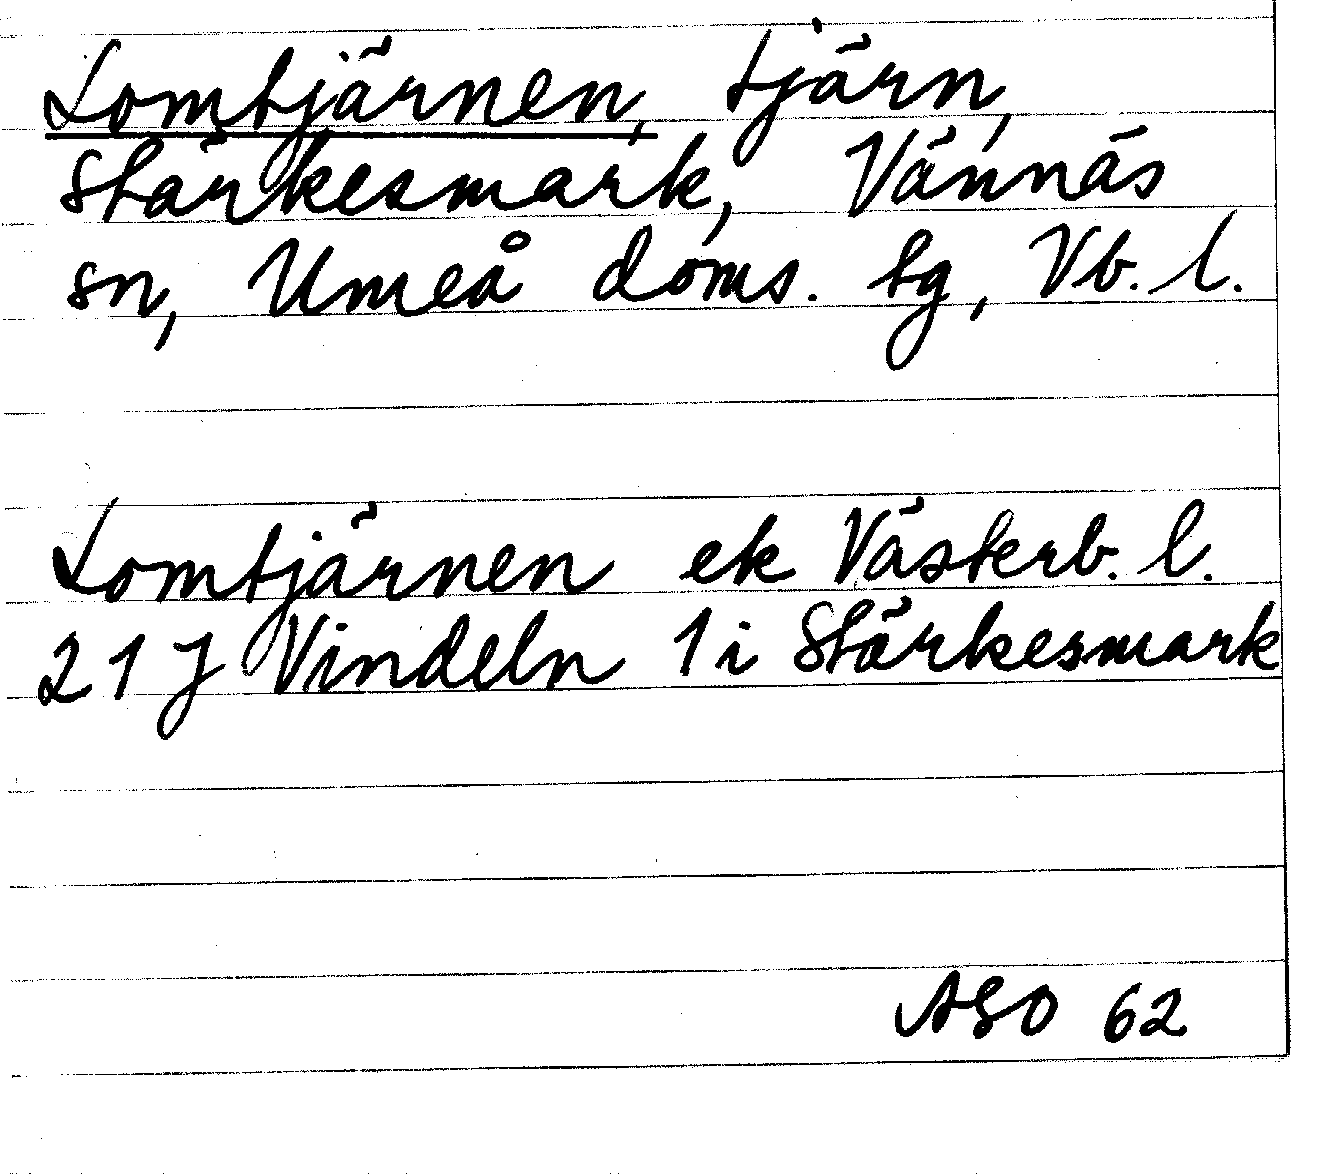 Lomtjärnen, tjärn,
Stärkesmark, Vännäs
sn, Umeå doms. tg, Vb. l.
Lomtjärnen ek Västerb. l.
21 J Vindeln 1 i Stärkesmark
ASO 62